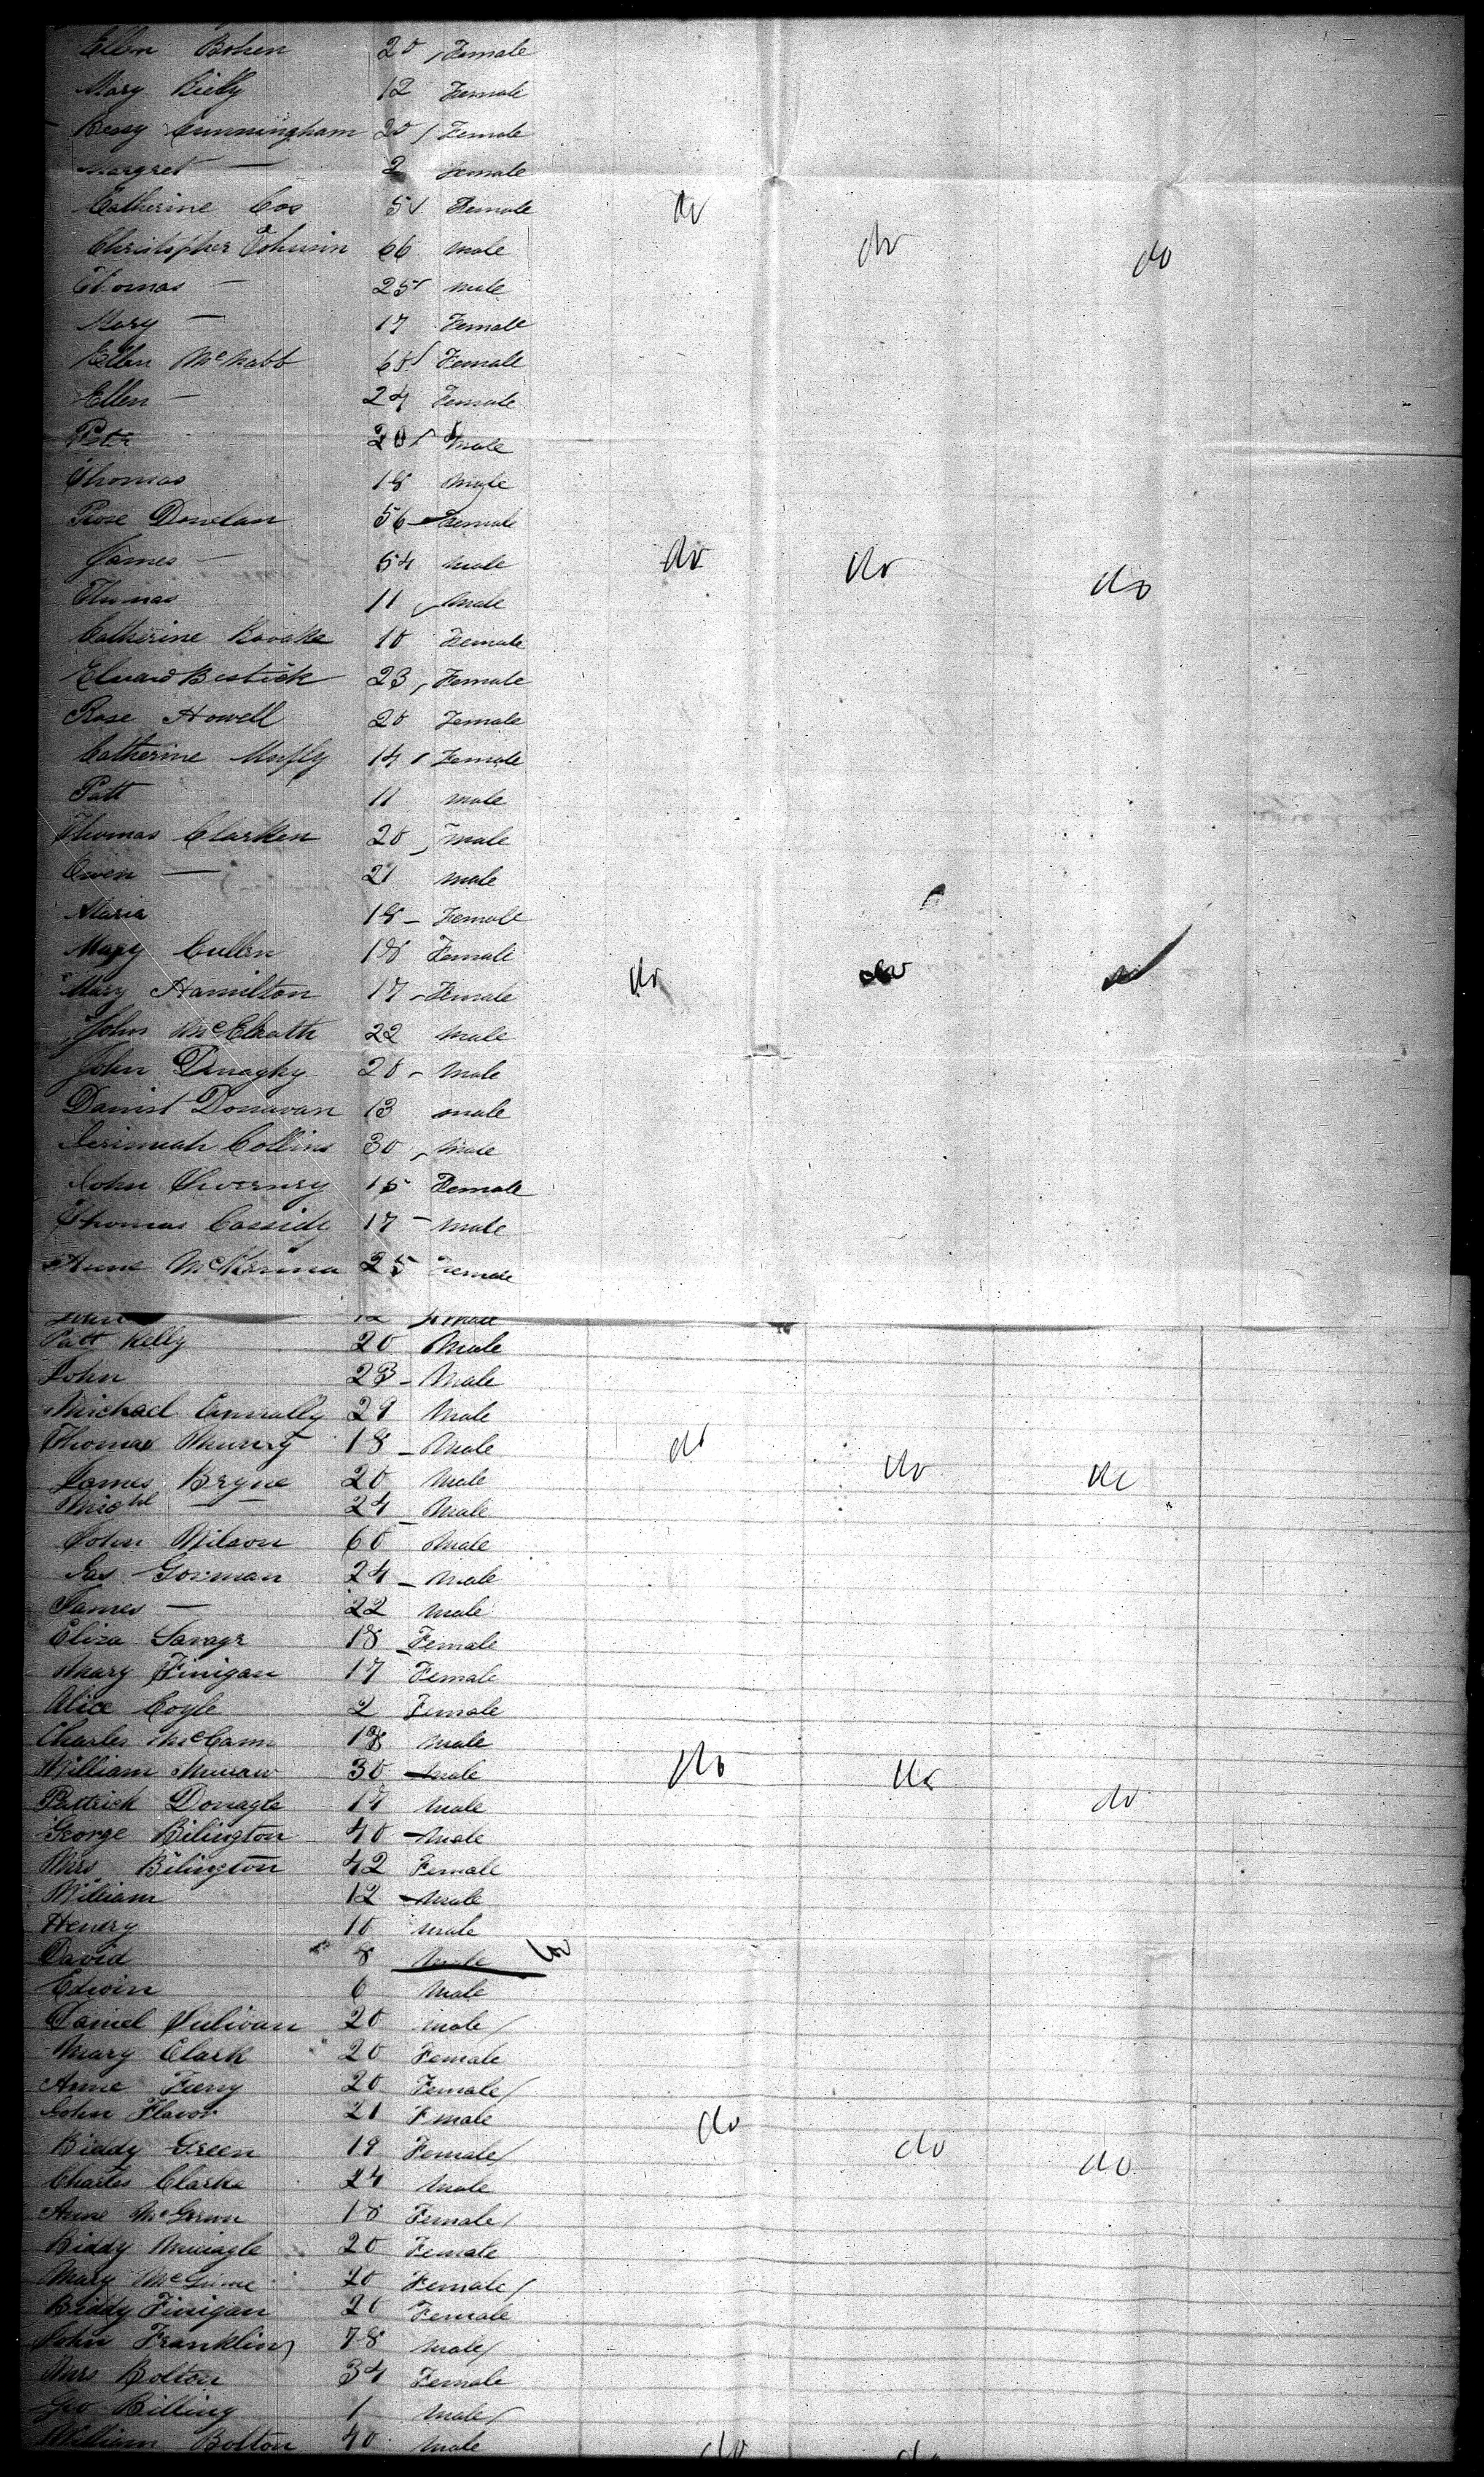 Ellen Bohen 20 Female
Mary Kielly 12 Female
Bessy Cunningham 20 Female
Margret — 2 Female
Catherine Cos 5 Female do
Christopher Johnsin 66 male do do
Thomas — 25 male
Mary — 17 Female
Ellen McNabb 60 Female
Ellen — 24 Female
Peter 20 male
Thomas 18 male
Rose Donelan 56 Female
James — 54 male do do do
Thomas 11 male
Catherine 10 Female
Bestick 23 Female
Rose Howell 20 Female
Catherine 14 Female
Patt 11 male
Thomas Clarken 20 male
Owen — 21 male
Maria 18 Female
Mary Cullen 18 Female
Mary Hamilton 17 Female do do
John McElrath 22 male
John Donaghy 20 male
Daniel Donavan 13 male
Jerimiah Collins 30 male
John 15 Female
Thomas Cassidy 17 male
Anne McKenna 25 Female
12
Patt Kelly 20 Male
John 23 Male
Michael Connally 29 Male
Thomas 18 Male do
James Bryne 20 Male do do
Michl — 24 Male
John Wilson 60 Male
Jas Gorman 24 Male
James — 22 male
Eliza Savage 18 Female
Mary Finigan 17 Female
Alice Coyle 2 Female
Charles McCann 18 male
William 30 male do do
Pattrick Donagle 17 male do
George Bilington 40 male
Mrs Bilington 42 Female
William 12 male
Henery 10 male
David 8 male
Edwin 6 male
Daniel Sulivan 20 male
Mary Clark 20 Female
Anne Feeny 20 Female
John Flavor 21 male do
Biddy Green 19 Female do do
Charles Clarke 24 male
Anne 18 Female
Biddy 20 Female
Mary 20 Female
Biddy Finigan 20 Female
John Franklin 78 male
Mrs Bolton 34 Female
Geo Billing 1 male
William Bolton 40 male do do